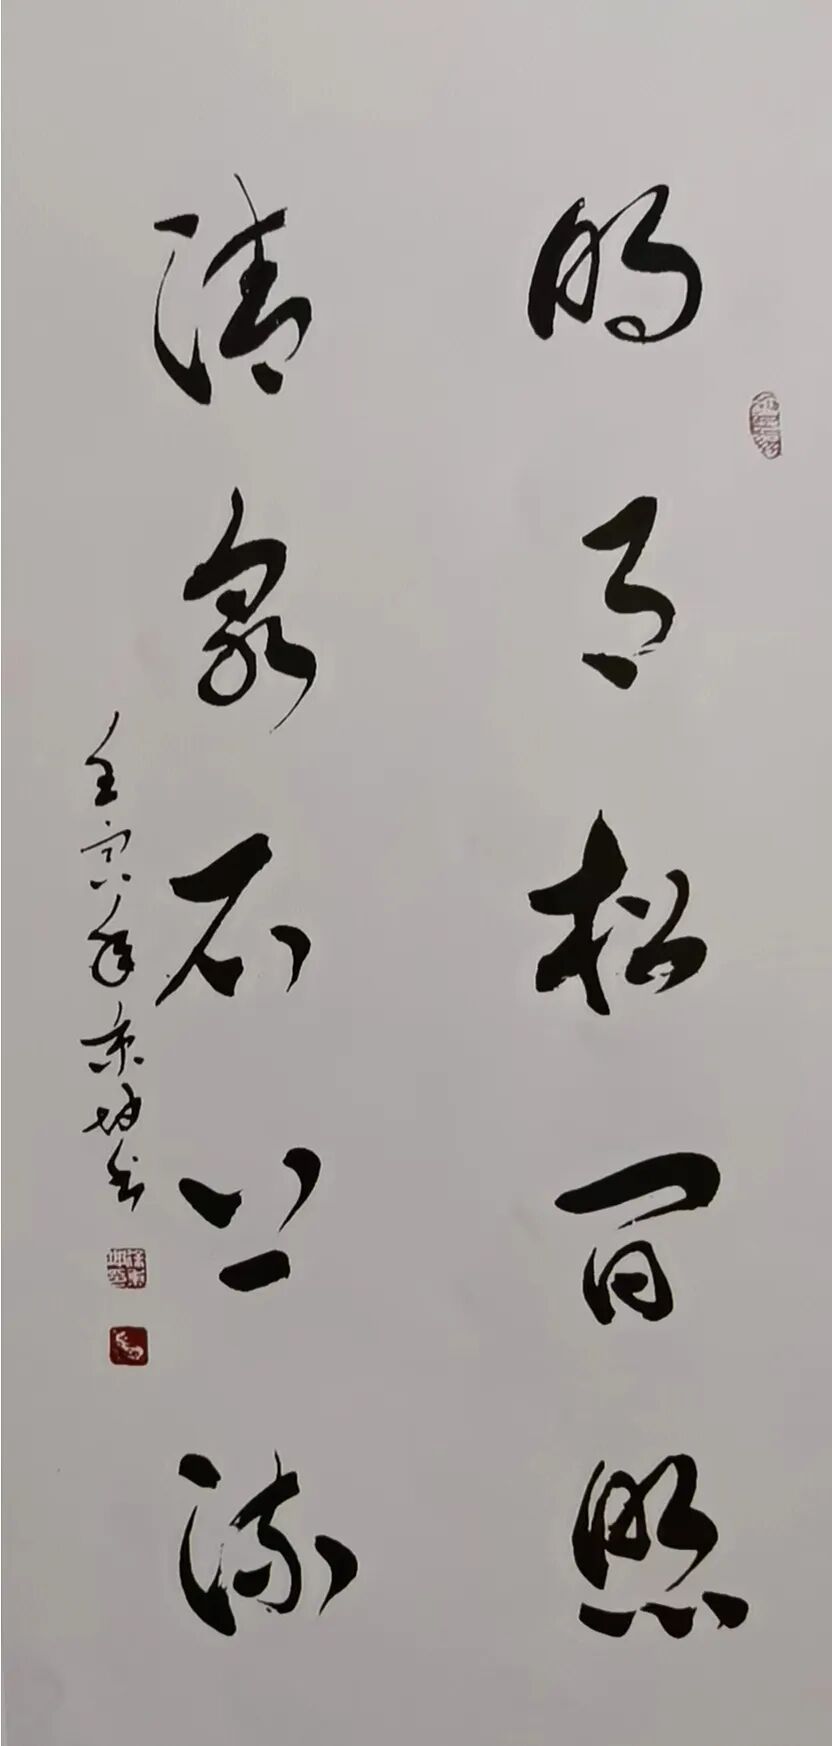 明月松间照
清泉石上流
壬寅年京坤书